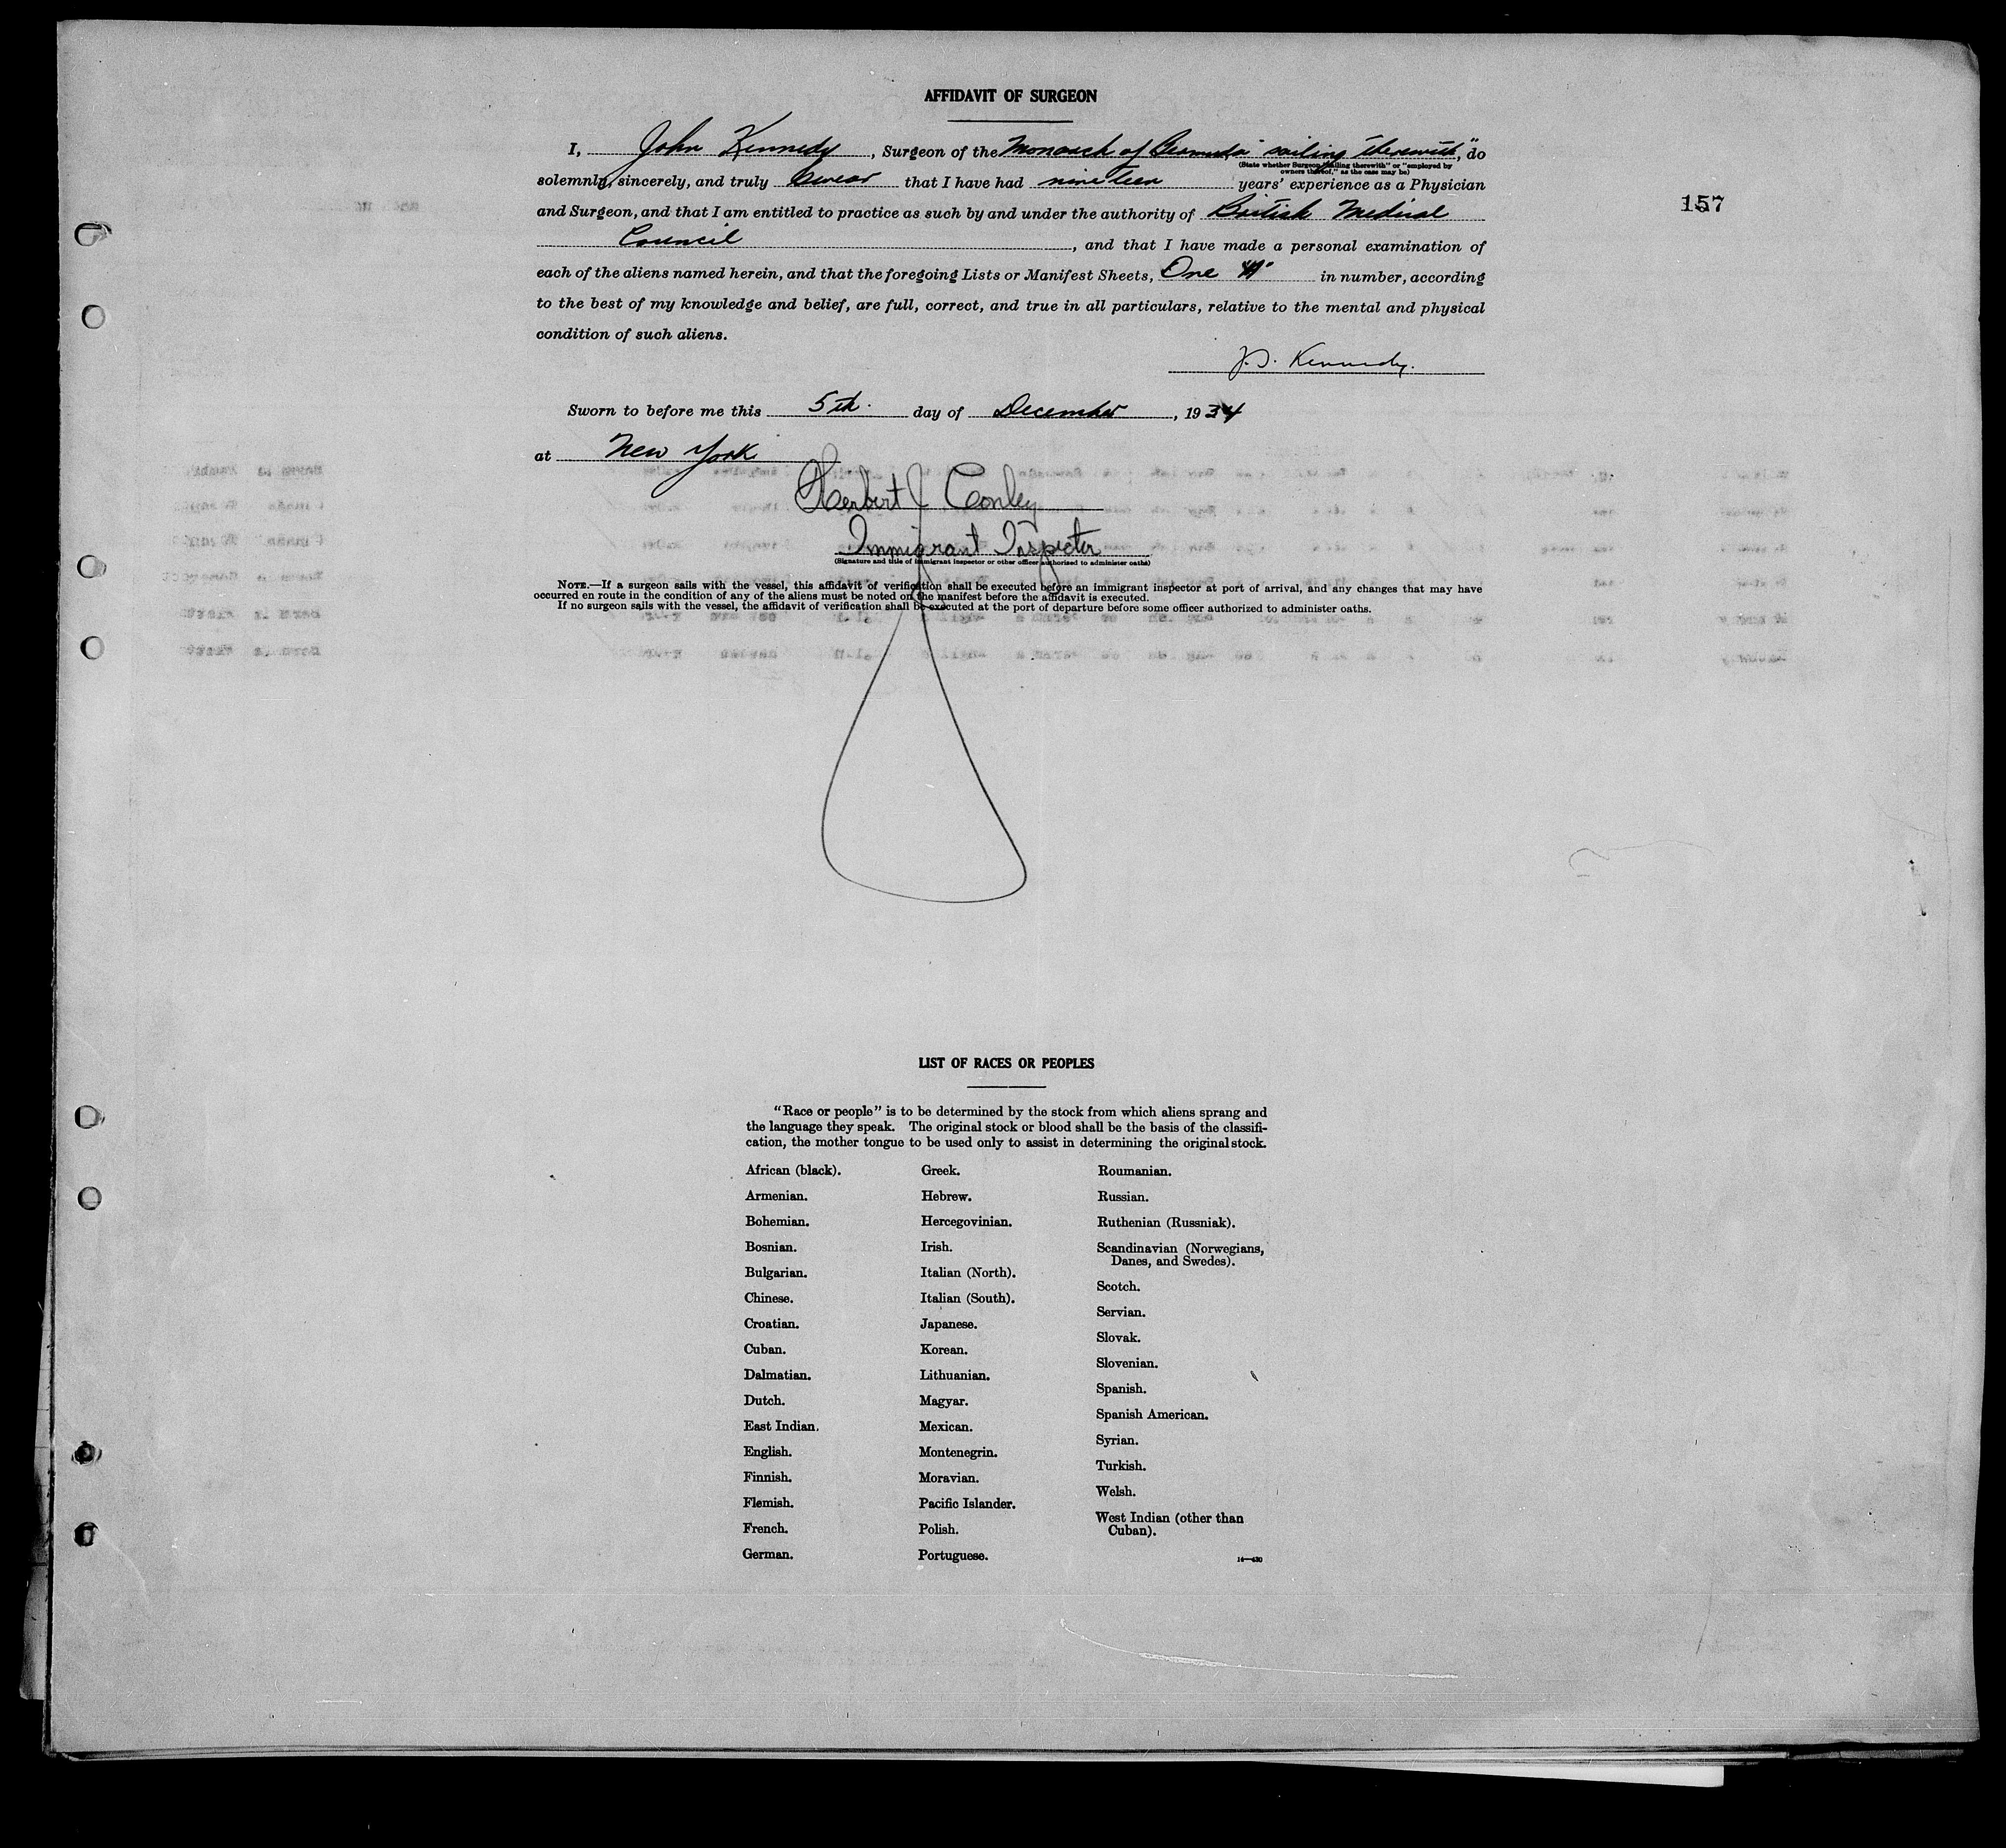 AFFIDAVIT OF SURGEON
I, John Kennedy, Surgeon of the Monarch of Bermuda "sailing therewith," do
(State whether Surgeon "sailing therewith" or "employed by
owners thereof," as the case may be)
solemnly, sincerely, and truly swear that I have had nineteen years' experience as a Physician
157
and Surgeon, and that I am entitled to practice as such by and under the authority of British Medical
Council, and that I have made a personal examination of
each of the aliens named herein, and that the foregoing Lists or Manifest Sheets, One in number, according
to the best of my knowledge and belief, are full, correct, and true in all particulars, relative to the mental and physical
condition of such aliens.
J. D. Kennedy.
Sworn to before me this 5th. day of December, 1934
at New York
Herbert J Conley
Immigrant Inspector
(Signature and title of immigrant inspector or other officer authorized to administer oaths)
NOTE.—If a surgeon sails with the vessel, this affidavit of verification shall be executed before an immigrant inspector at port of arrival, and any changes that may have
occurred en route in the condition of any of the aliens must be noted on the manifest before the affidavit is executed.
If no surgeon sails with the vessel, the affidavit of verification shall be executed at the port of departure before some officer authorized to administer oaths.
LIST OF RACES OR PEOPLES
"Race or people" is to be determined by the stock from which aliens sprang and
the language they speak. The original stock or blood shall be the basis of the classifi-
cation, the mother tongue to be used only to assist in determining the original stock.
African (black).
Armenian.
Bohemian.
Bosnian.
Bulgarian.
Chinese.
Croatian.
Cuban.
Dalmatian.
Dutch.
East Indian.
English.
Finnish.
Flemish.
French.
German.
Greek.
Hebrew.
Hercegovinian.
Irish.
Italian (North).
Italian (South).
Japanese.
Korean.
Lithuanian.
Magyar.
Mexican.
Montenegrin.
Moravian.
Pacific Islander.
Polish.
Portuguese.
Roumanian.
Russian.
Ruthenian (Russniak).
Scandinavian (Norwegians,
Danes, and Swedes).
Scotch.
Servian.
Slovak.
Slovenian.
Spanish.
Spanish American.
Syrian.
Turkish.
Welsh.
West Indian (other than
Cuban).
14—430